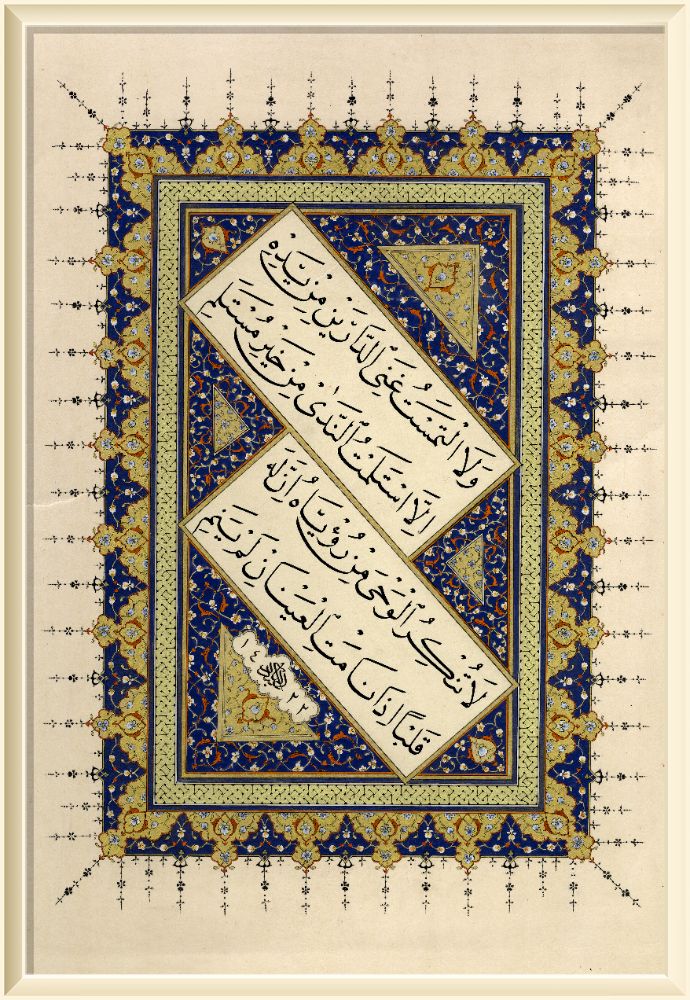 وَلَا الْتَمَسْتُ غِنَى الدَّارَيْنِ مِنْ يَدِهِ
اِلَّا اسْتَلَمْتُ النَّدٰى مِنْ خَيْرِ مُسْتَلَمِ
لَا تُنْكِرُ الْوَحْيَ مِنْ رُؤْيَاهُ اِنَّ لَهُ
قَلْبًا اِذَا نَامَتِ الْعَيْنَانِ لَمْ يَنَمِ
١٤٢٢